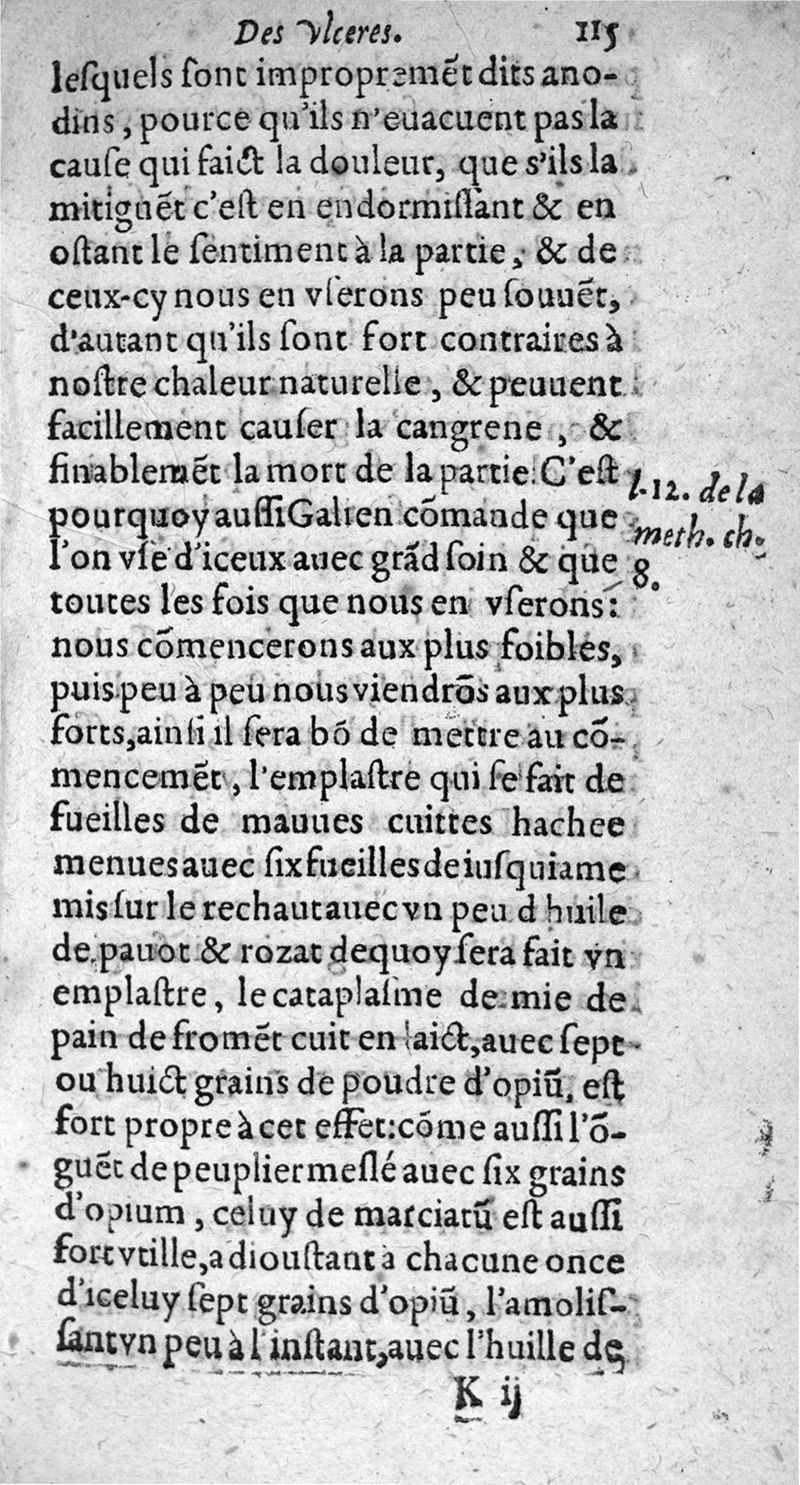 Des vlceres. 115
leſquels ſont impropremēt dits ano-
dins, pource qu'ils n'euacuent pas la
cauſe qui faict la douleur, que s'ils la
mitiguēt c'eſt en endormiſſant & en
oſtant le ſentiment à la partie, & de
ceux-cy nous en vſerons peu ſouuēt,
d'autant qu'ils ſont fort contraires à
noſtre chaleur naturelle, & peuuent
facillement cauſer la cangrene, &
finablemēt la mort de la partie. C'eſt
pourquoy auſſi Galien cōmande que
l'on vſe d'iceux auec grād ſoin & que
toutes les fois que nous en vſerons:
nous cōmencerons aux plus foibles,
puis peu à peu nous viendrōs aux plus
forts, ainſi il ſera bō de mettre au cō-
mencemēt, l'emplaſtre qui ſe fait de
fueilles de mauues cuittes hachee
menues auec ſix fueilles de iuſquiame
mis ſur le rechaut auec vn peu d'huile
de pauot & rozat dequoy ſera fait vn
emplaſtre, le cataplaſme de mie de
pain de fromēt cuit en laict, auec ſept
ou huict grains de poudre d'opiū, eſt
fort propre à cet effet: cōme auſſi l'ō-
guēt de peuplier meſlé auec ſix grains
d'opium, celuy de marciatū eſt auſſi
fort vtille, adiouſtant à chacune once
d'iceluy ſept grains d'opiū, l'amoliſ-
ſant vn peu à l'inſtant, auec l'huille de
K ij
l. 12. de la
meth. ch.
8.